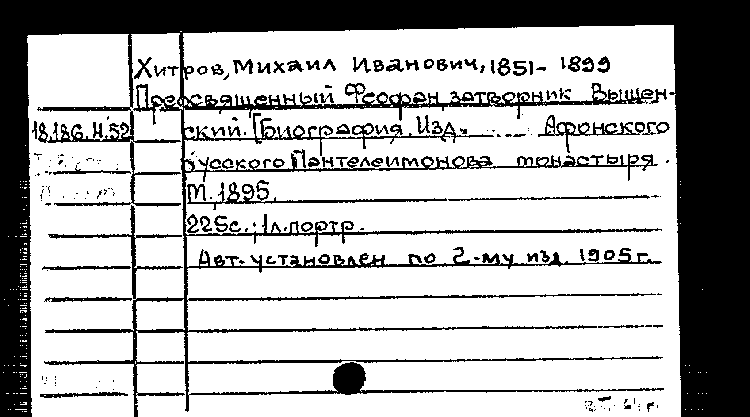 Хитров, Михаил Иванович, 1851-1899
Преосвященный Феофан, затворник Вышен-
18.186.4.52 ский. [Биография. Изд. Афонского
русского Пантелеимонова монастыря.
М, 1895.
225с.; 1л.портр.
Авт. установлен по 2-му изд. 1905г.